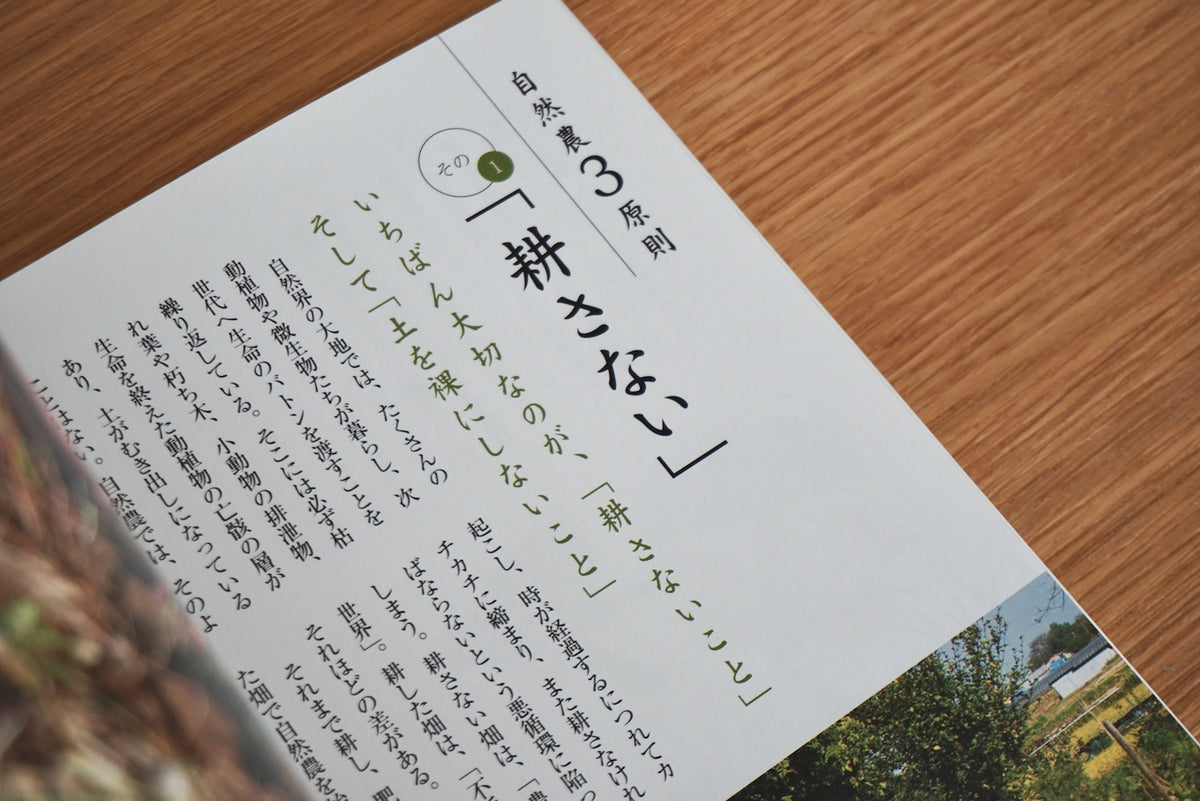 自然農3原則
その1
「耕さない」
いちばん大切なのが、「耕さないこと」
そして「土を裸にしないこと」
自然界の大地では、たくさんの
動植物や微生物たちが暮らし、次
世代へ生命のバトンを渡すことを
繰り返している。そこには必ず枯
れ葉や朽ち木、小動物の排泄物、
生命を終えた動植物の亡骸の層が
あり、土がむき出しになっている
ことはない。自然農では、そのよ
起こし、時が経過するにつれてカ
チカチに締まり、また耕さなけれ
ばならないという悪循環に陥っ
しまう。耕さない畑は、「農
世界」。耕した畑は、「不
それほどの差がある。
それまで耕し、肥
た畑で自然農を始